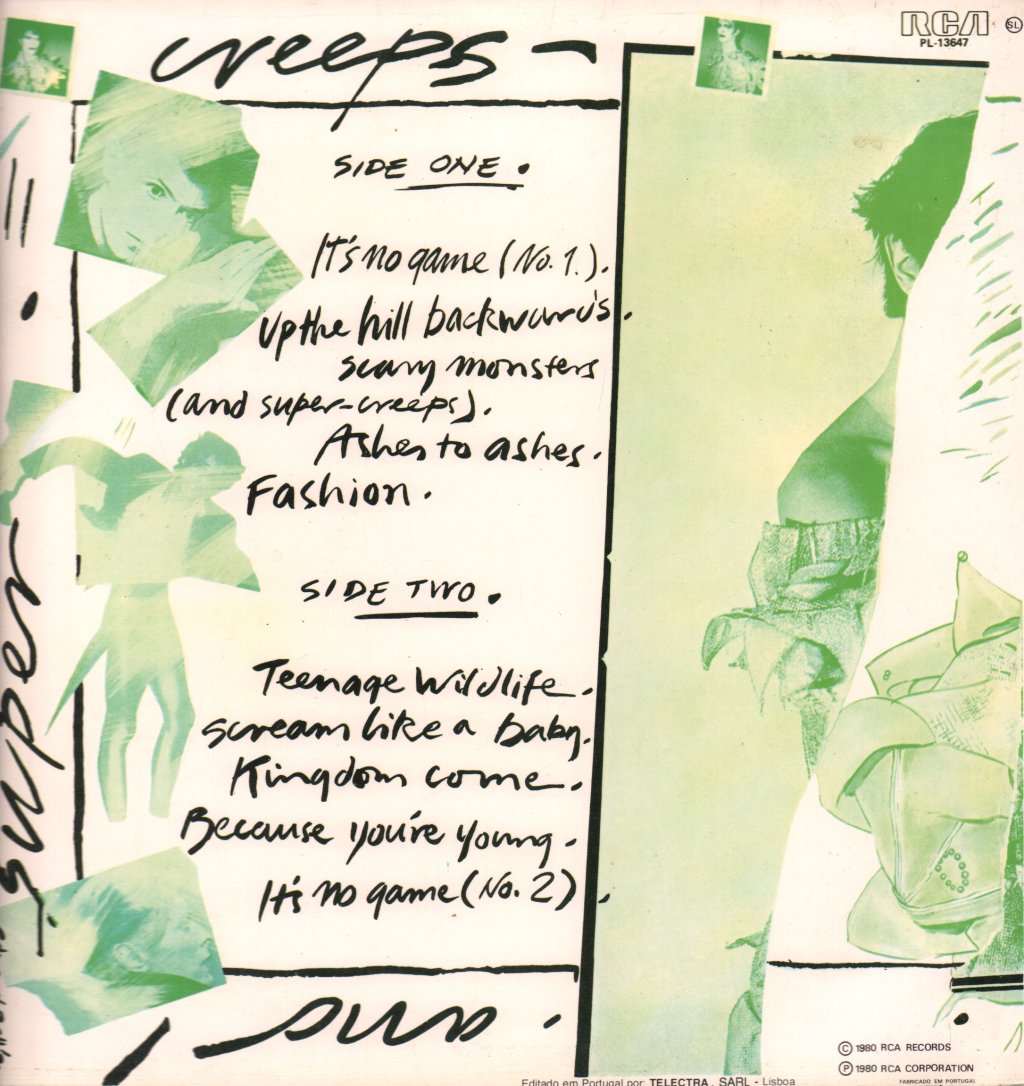 creeps
RCA SL
PL-13647
SIDE ONE.
It's no game (No. 1.).
Up the hill backwards.
scary monsters
(and super-creeps).
Ashes to ashes.
Fashion.
SIDE TWO.
Teenage Wildlife.
scream like a baby.
Kingdom come.
Because you're young.
It's no game (No. 2)
super
and
© 1980 RCA RECORDS
Ⓟ 1980 RCA CORPORATION
FABRICADO EM PORTUGAL
Editado em Portugal por: TELECTRA, SARL - Lisboa